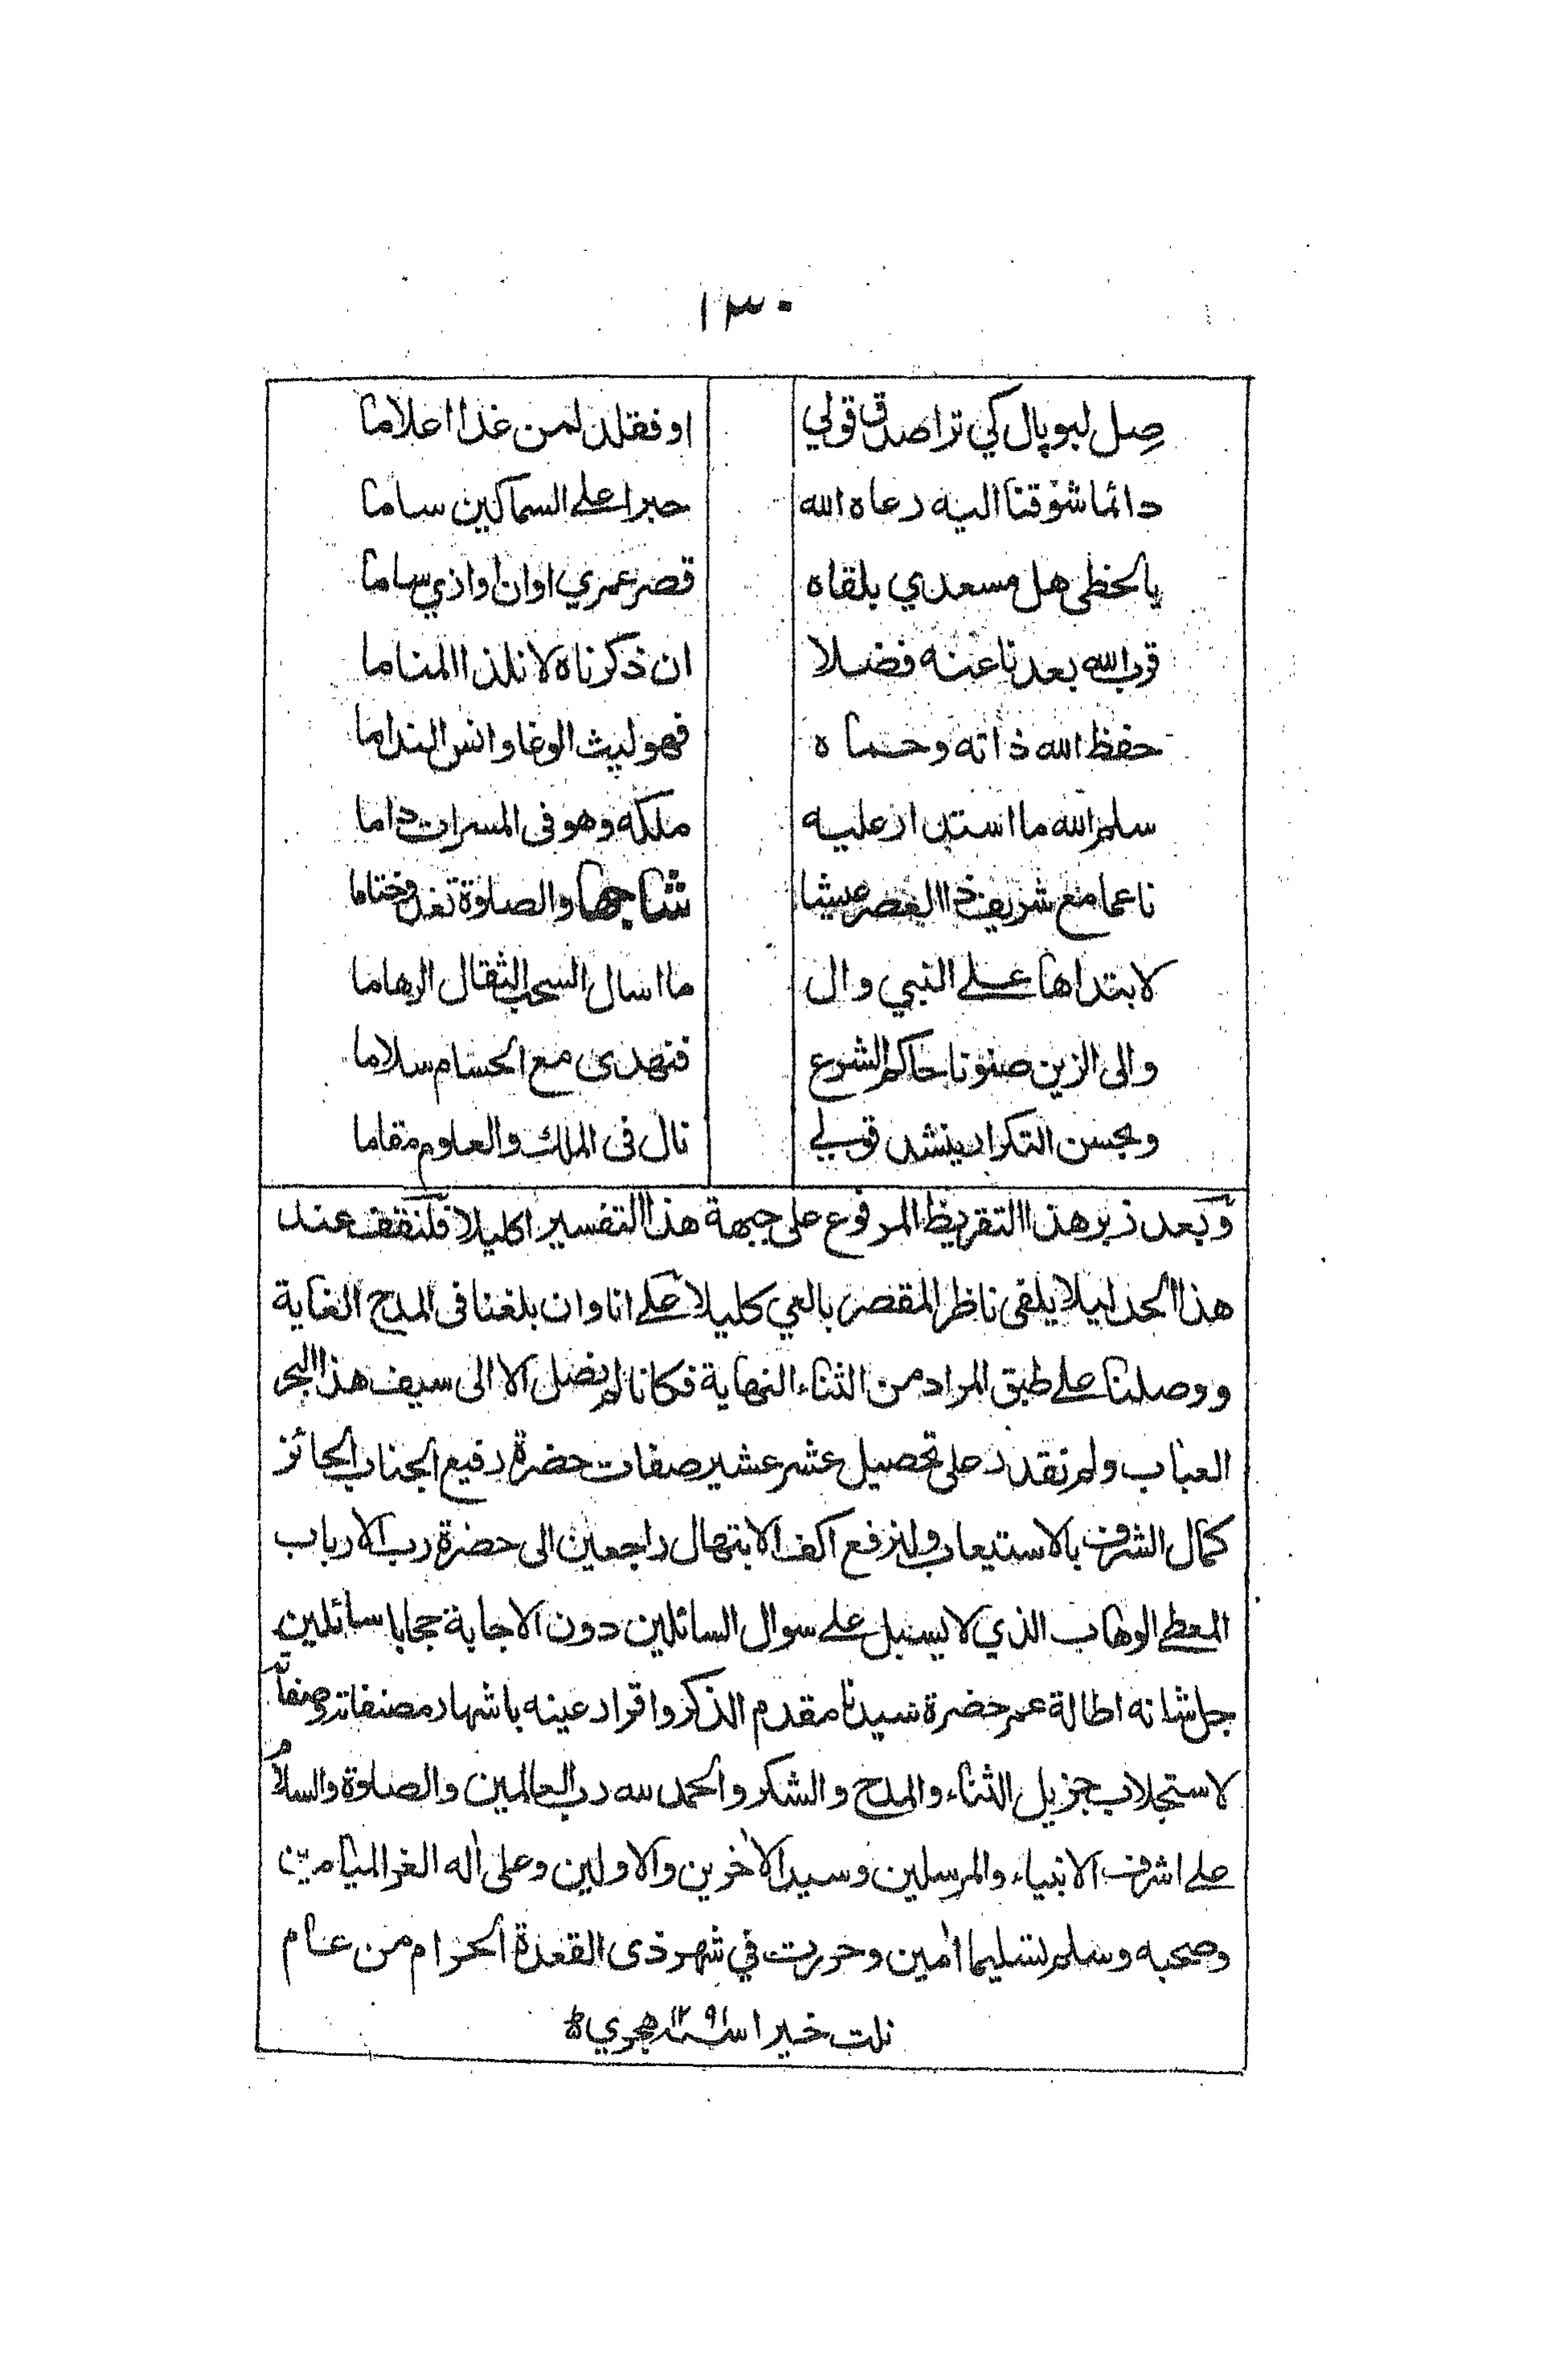 ١٣٠
صل لبوپال كي ترا صدق قولي او فقلد لمن غدا اعلاما
دائما شوقنا اليه دعاه الله حبرا على السماكين ساما
يا لحظي هل مسعدي بلقاه قصر عمري اوان اواذي ساما
قرب الله بعدنا عنه فضلا ان ذكرناه لا نلذ المناما
حفظ الله ذاته وحماه فهو ليث الوغا وانس الندا ما
سلم الله ما استدار عليه ملكه وهو في المسرات داما
ناعما مع شريف ذا العصر عيشا شاجها والصلوة تغدو ختاما
لابتداها على النبي وال ما اسال السحب الثقال الرهاما
والى الزين صنونا حاكم الشرع فنهدى مع الحسام سلاما
وبحسن التكرار ينشد قولي نال فى الملك والعلوم مقاما
وبعد زبر هذا التقريظ المرفوع على جبهة هذا التفسير اكليلا فلنقف عند
هذا الحد ليلا يلفى ناظر المقصر بالعي كليلا على انا وان بلغنا فى المدح الغاية
ووصلنا على طبق المراد من الثناء النهاية فكانا لم نصل الا الى سيف هذا البحر
العباب ولم نقدر على تحصيل عشر عشير صفات حضرة رفيع الجناب الحائز
كمال الشرف بالاستيعاب ولنرفع اكف الابتهال راجعين الى حضرة رب الارباب
المعطى الوهاب الذي لا يسبل على سوال السائلين دون الاجابة حجابا سائلين
جل شانه اطالة عمر حضرة سيدنا مقدم الذكر واقرار عينه باشهار مصنفاته وصفاته
لاستجلاب جزيل الثناء والمدح والشكر والحمد لله رب العالمين والصلوة والسلام
على اشرف الانبياء والمرسلين وسيد الاخرين والاولين وعلى اله الغر الميامين
وصحبه وسلم تسليما امين وحررت في شهر ذى القعدة الحرام من عام
نلت خيرا سنه ١٢٩١ هجري